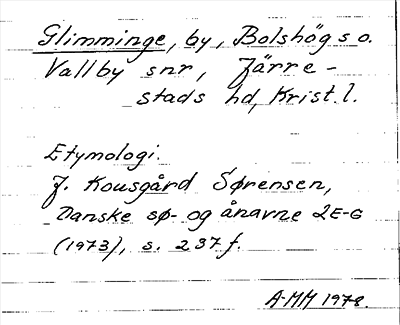 Glimminge, by, Bolshög s o.
Vallby snr, Järre-
stads hd, Krist. l.
Etymologi.
J. Kousgård Sørensen,
Danske sø- og ånavne 2E-G
(1973), s. 237 f.
A-MM 1978.